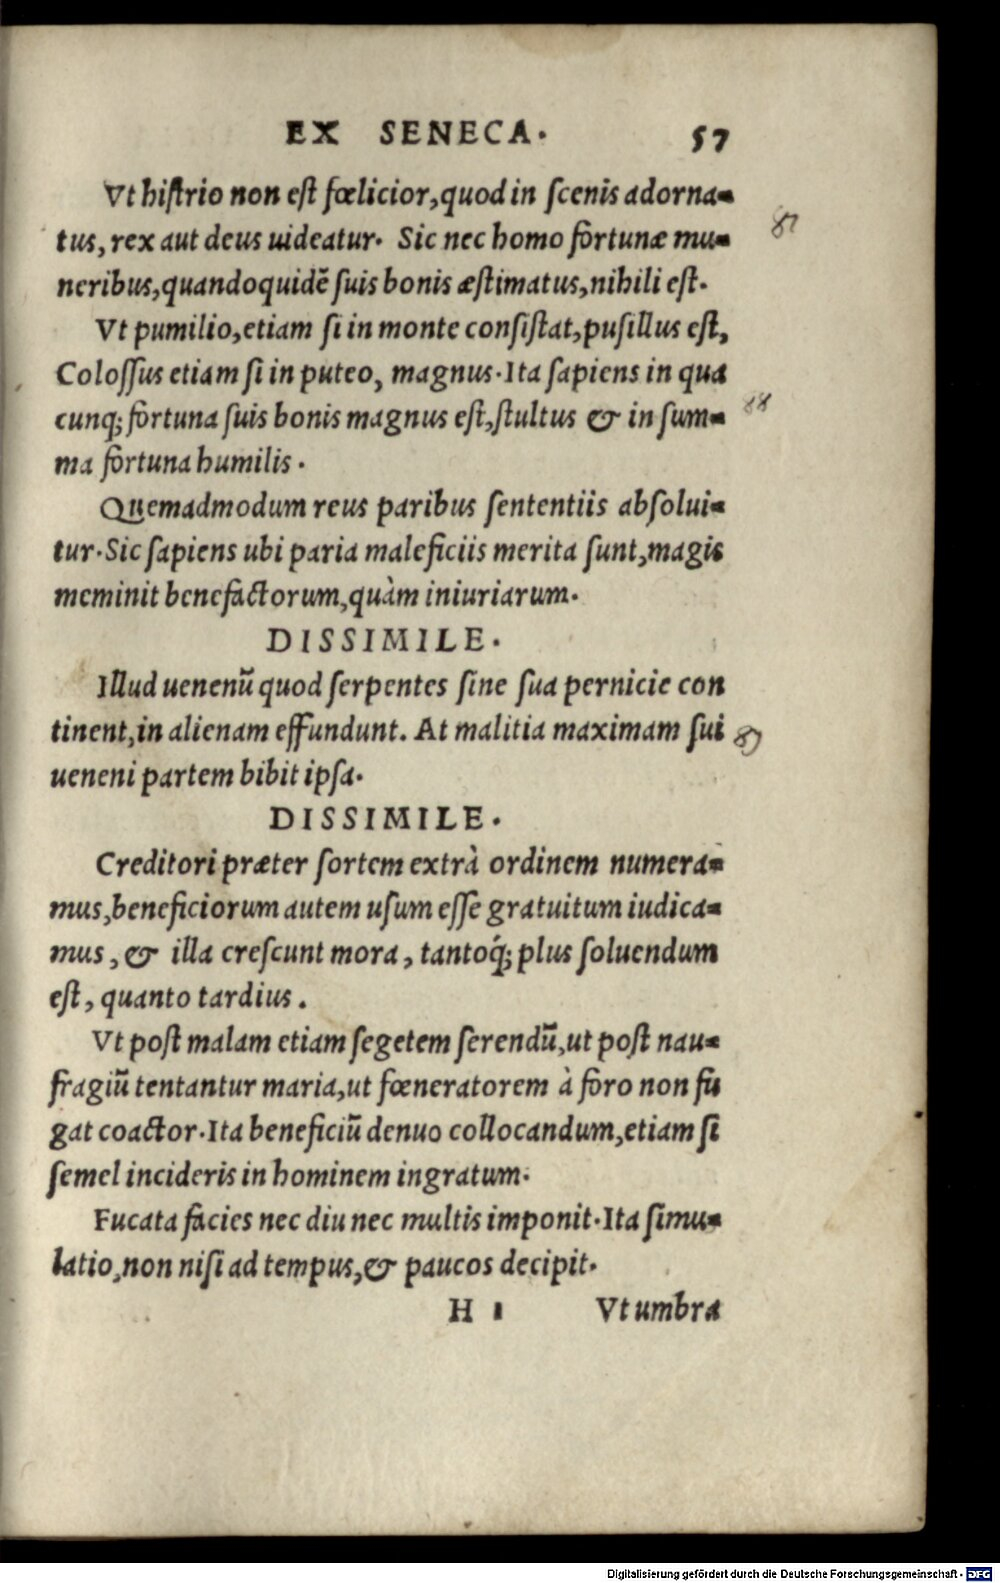 EX SENECA. 57
Vt histrio non est fœlicior, quod in scenis adorna-
tus, rex aut deus uideatur. Sic nec homo fortunæ mu-
neribus, quandoquidẽ suis bonis æstimatus, nihili est.
87
Vt pumilio, etiam si in monte consistat, pusillus est,
Colossus etiam si in puteo, magnus. Ita sapiens in qua
cunq; fortuna suis bonis magnus est, stultus & in sum-
88
ma fortuna humilis.
Quemadmodum reus paribus sententiis absolui-
tur. Sic sapiens ubi paria maleficiis merita sunt, magis
meminit benefactorum, quàm iniuriarum.
DISSIMILE.
Illud uenenũ quod serpentes sine sua pernicie con
tinent, in alienam effundunt. At malitia maximam sui
ueneni partem bibit ipsa.
DISSIMILE.
Creditori præter sortem extrà ordinem numera-
mus, beneficiorum autem usum esse gratuitum iudica-
mus, & illa crescunt mora, tantoq́; plus soluendum
est, quanto tardius.
Vt post malam etiam segetem serendũ, ut post nau-
fragiũ tentantur maria, ut fœneratorem à foro non fu
gat coactor. Ita beneficiũ denuo collocandum, etiam si
semel incideris in hominem ingratum.
Fucata facies nec diu nec multis imponit. Ita simu-
latio, non nisi ad tempus, & paucos decipit.
H 1 Vt umbra
Digitalisierung gefördert durch die Deutsche Forschungsgemeinschaft - DFG